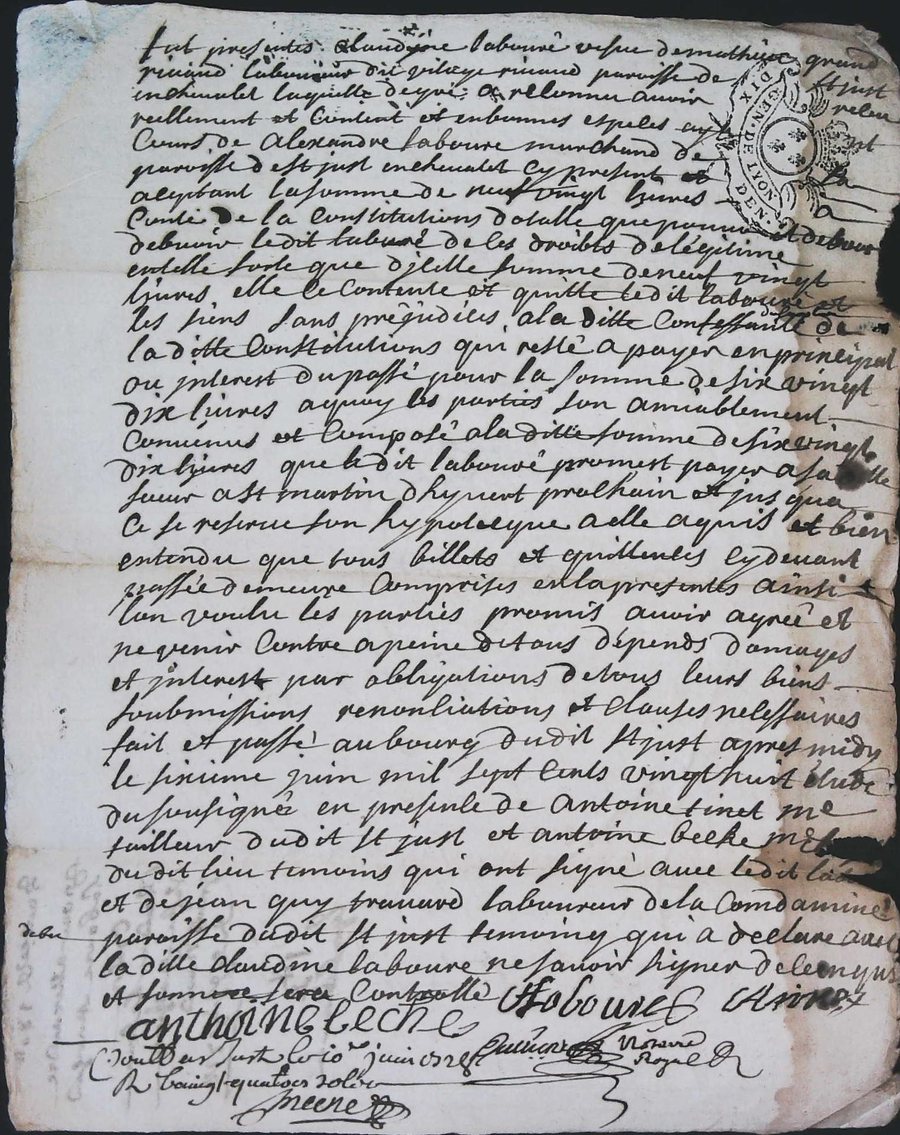 fut presentes claudine labouré vefve de mathieu grand
rivaud laboureur dit vilage rivaud paroisse de st just
en chevalet laquelle de gré a reconnu avoir receu
reellement et content et en bonnes especes
de alexandre labouré marchand de
paroisse de st just en chevalet cy present et
aceptant la somme de neuf vingt livres
de la constitutions dotalle que
ledit labouré de les droibts de legitime
en telle sorte que dicelle somme de neuf vingt
livres elle ce contente et quitte ledit labouré et
les siens sans prejudices a la ditte confessante de
la ditte constitutions qui reste a payer en principal
ou interest du passé pour la somme de six vingt
dix livres a quoy les parties son amiablement
convenus et composé a la ditte somme de six vingt
dix livres que ledit labouré promest payer a sa ditte
soeur a st martin d'hyvert prochain et jus qua
ce se reserve son hypotecque a elle aquis et bien
entendu que tous billets et quittences cy devant
passée demeure comprises en la presentes ainsi
lon voulu les parties promis avoir agreé et
ne venir contre a peine de tous dépends domages
et interest par obligations de tous leurs biens
soubmissions renonciations et clauses necessaires
fait et passé au bourg dudit st just apres midy
le sixieme juin mil sept cents vingt huit
du sousigné en presence de antoine tinet me
tailleur dudit st just et antoine beche
dudit lieu temoins qui ont signé avec ledit
et de jean guy travard laboureur de la condamine
paroisse dudit st just temoing qui a declaré avec
la ditte claudine laboure ne savoir signer de ce enquis
et sommee sera controllé
anthoine beche Labouré
notaire
Royal
st just le 10e juin 1728
R quatorz
GEN. DE LYON
DIX DEN.